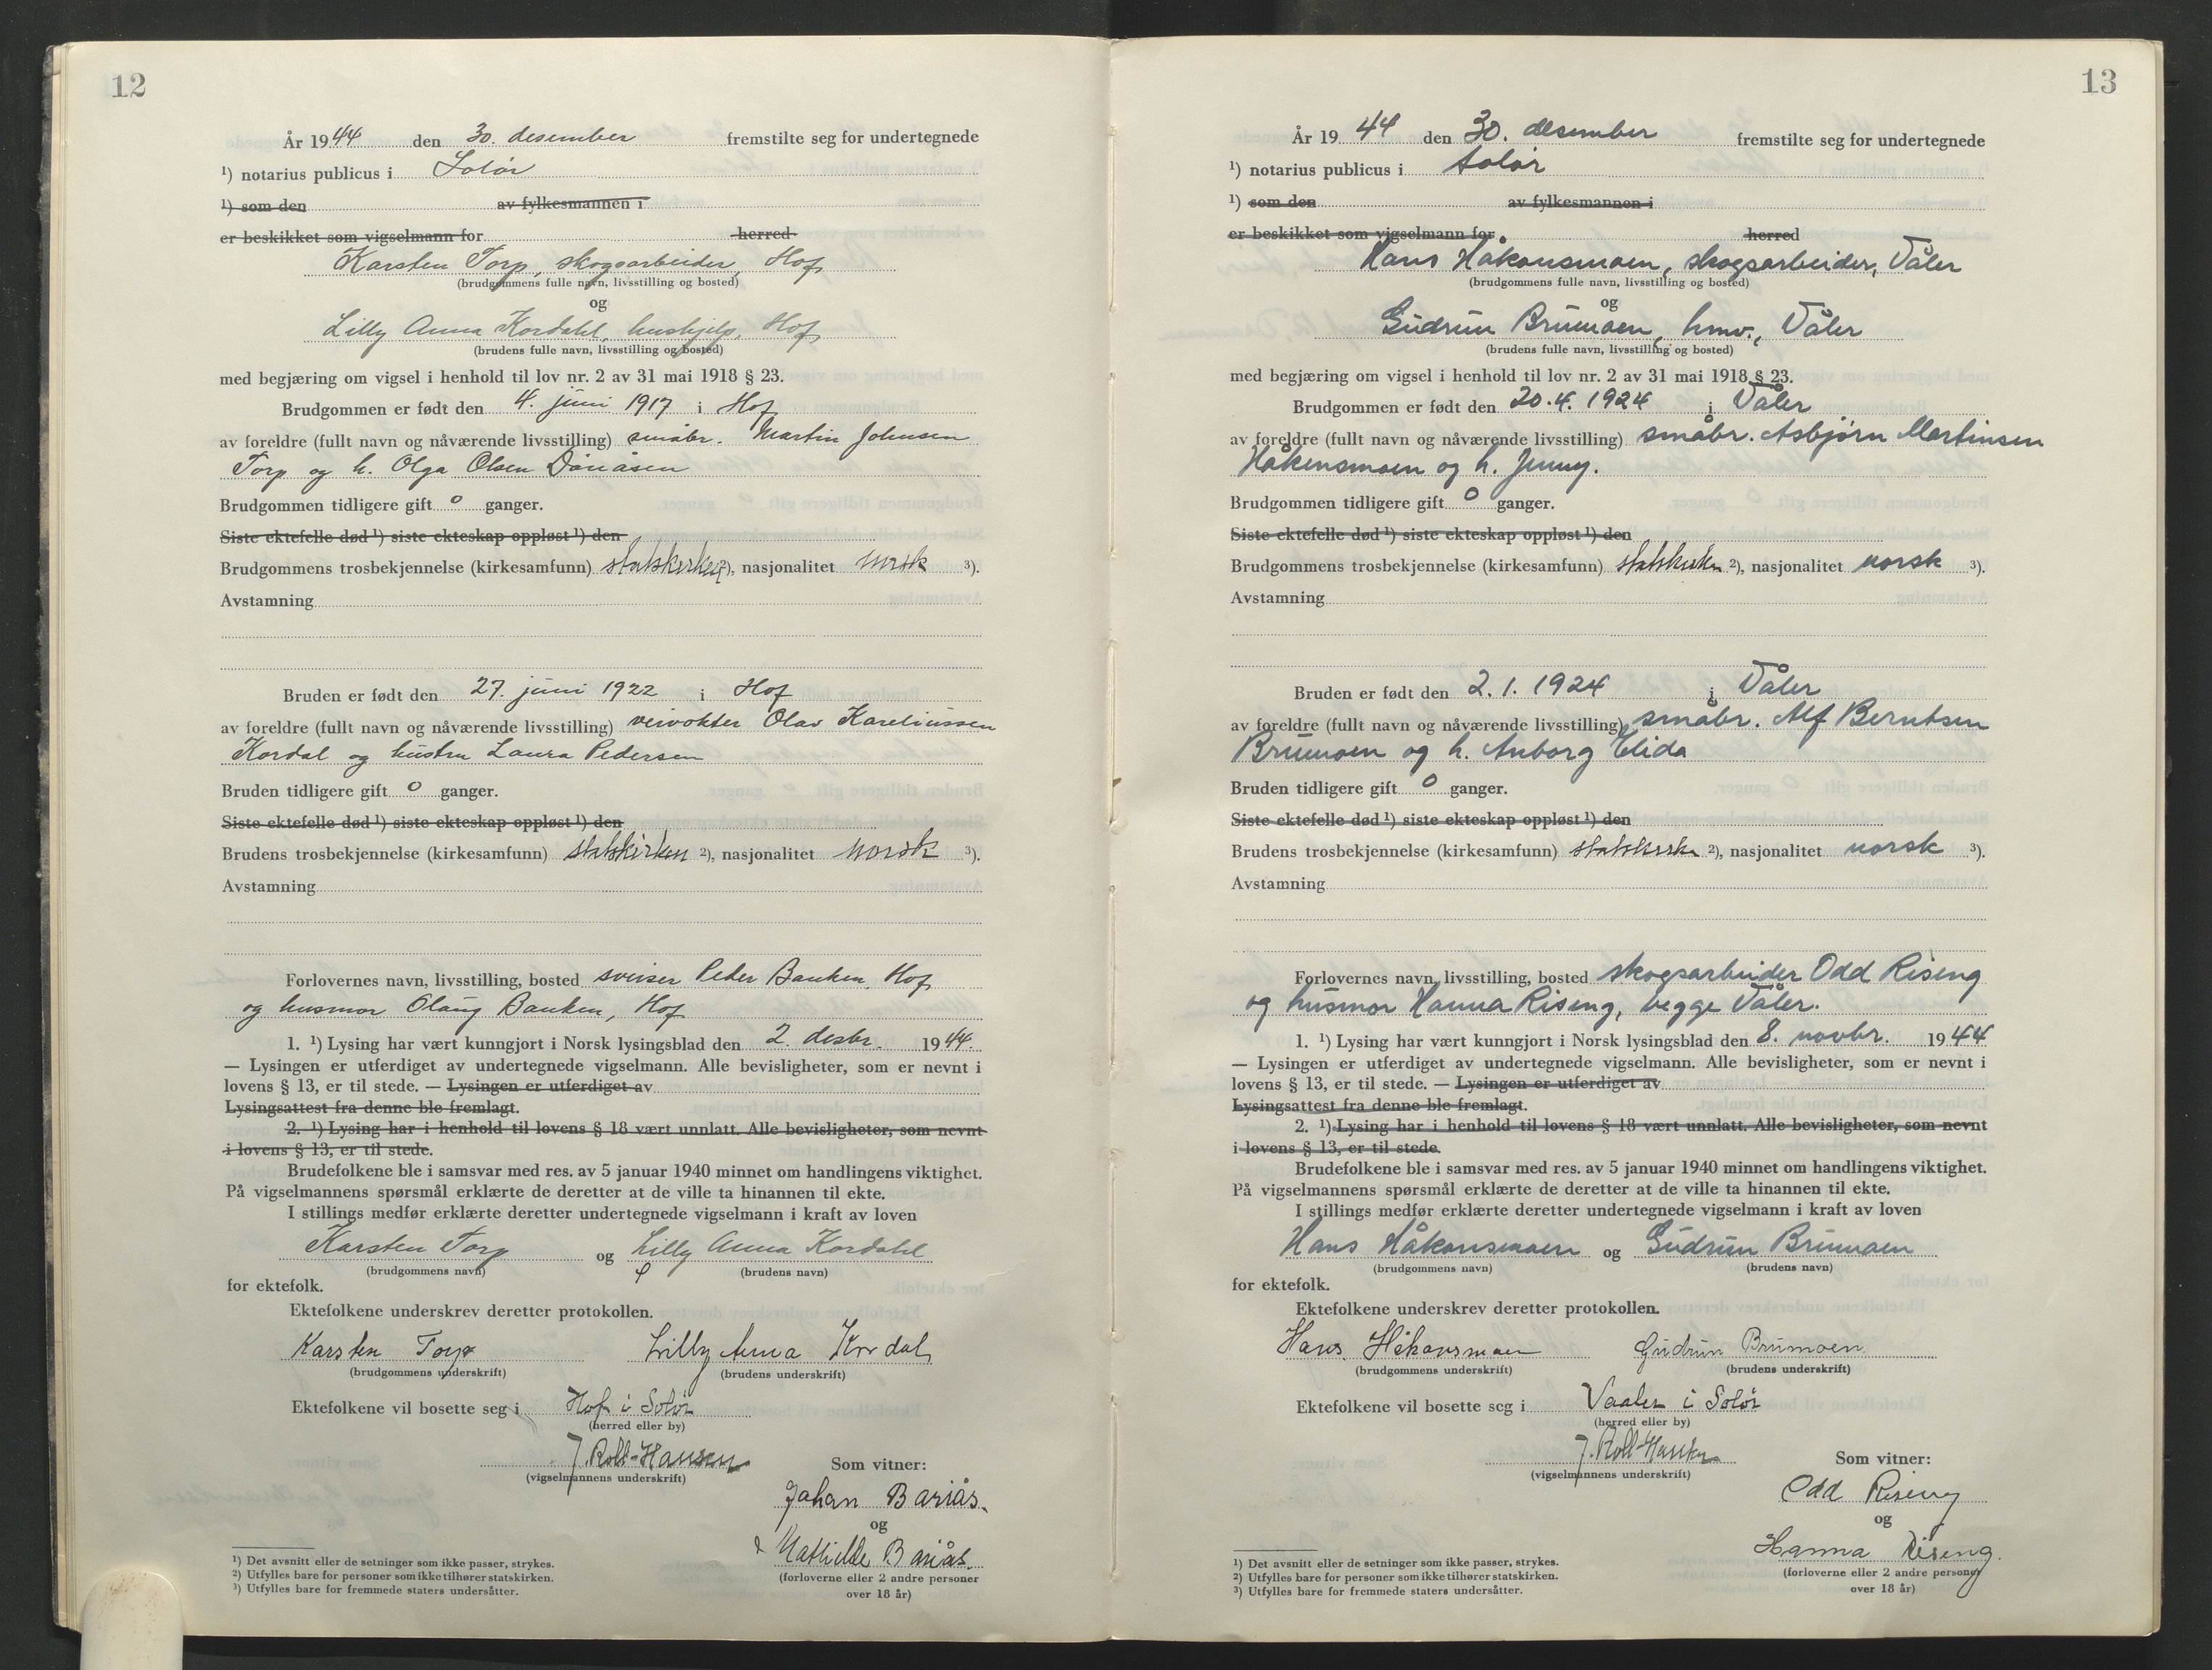 12
År 1944 den 30. desember fremstilte seg for undertegnede
¹) notarius publicus i Solør
¹) som den av fylkesmannen i
er beskikket som vigselmann for herred
Karsten Torp, skogsarbeider, Hof
(brudgommens fulle navn, livsstilling og bosted)
og
Lilly Anna Kordahl, hushjelp, Hof
(brudens fulle navn, livsstilling og bosted)
med begjæring om vigsel i henhold til lov nr. 2 av 31 mai 1918 § 23.
Brudgommen er født den 4. juni 1917 i Hof
av foreldre (fullt navn og nåværende livsstilling) småbr. Martin Johnsen
Torp og h. Olga Olsen
Brudgommen tidligere gift 0 ganger.
Siste ektefelle død ¹) siste ekteskap oppløst ¹) den
Brudgommens trosbekjennelse (kirkesamfunn) statskirken ²), nasjonalitet norsk ³).
Avstamning
Bruden er født den 27. juni 1922 i Hof
av foreldre (fullt navn og nåværende livsstilling) veivokter Olav Kareliussen
Kordal og hustru Laura Pedersen
Bruden tidligere gift 0 ganger.
Siste ektefelle død ¹) siste ekteskap oppløst ¹) den
Brudens trosbekjennelse (kirkesamfunn) statskirken ²), nasjonalitet norsk ³).
Avstamning
Forlovernes navn, livsstilling, bosted sveiser Peder Banken, Hof
og husmor Olaug Banken, Hof
1. ¹) Lysing har vært kunngjort i Norsk lysingsblad den 2. desbr. 1944.
— Lysingen er utferdiget av undertegnede vigselmann. Alle bevisligheter, som er nevnt i
lovens § 13, er til stede. — Lysingen er utferdiget av
Lysingsattest fra denne ble fremlagt.
2. ¹) Lysing har i henhold til lovens § 18 vært unnlatt. Alle bevisligheter, som nevnt
i lovens § 13, er til stede.
Brudefolkene ble i samsvar med res. av 5 januar 1940 minnet om handlingens viktighet.
På vigselmannens spørsmål erklærte de deretter at de ville ta hinannen til ekte.
I stillings medfør erklærte deretter undertegnede vigselmann i kraft av loven
Karsten Torp og Lilly Anna Kordahl
(brudgommens navn) (brudens navn)
for ektefolk.
Ektefolkene underskrev deretter protokollen.
Karsten Torp Lilly Anna Kordal
(brudgommens underskrift) (brudens underskrift)
Ektefolkene vil bosette seg i Hof i Solør
(herred eller by)
J. Roll-Hansen
(vigselmannens underskrift)
Som vitner:
Johan Bariås
og
Mathilde Bariås
(forloverne eller 2 andre personer
over 18 år)
¹) Det avsnitt eller de setninger som ikke passer, strykes.
²) Utfylles bare for personer som ikke tilhører statskirken.
³) Utfylles bare for fremmede staters undersåtter.
13
År 1944 den 30. desember fremstilte seg for undertegnede
¹) notarius publicus i Solør
¹) som den av fylkesmannen i
er beskikket som vigselmann for herred
Hans Håkonsmoen, skogsarbeider, Våler
(brudgommens fulle navn, livsstilling og bosted)
og
Gudrun Brumoen, hmv., Våler
(brudens fulle navn, livsstilling og bosted)
med begjæring om vigsel i henhold til lov nr. 2 av 31 mai 1918 § 23.
Brudgommen er født den 20.4. 1924 i Våler
av foreldre (fullt navn og nåværende livsstilling) småbr. Asbjørn Martinsen
Håkensmoen og h. Jenny.
Brudgommen tidligere gift 0 ganger.
Siste ektefelle død ¹) siste ekteskap oppløst ¹) den
Brudgommens trosbekjennelse (kirkesamfunn) statskirken ²), nasjonalitet norsk ³).
Avstamning
Bruden er født den 2.1. 1924 i Våler
av foreldre (fullt navn og nåværende livsstilling) småbr. Alf Berntsen
Brumoen og h. Anborg Elida
Bruden tidligere gift 0 ganger.
Siste ektefelle død ¹) siste ekteskap oppløst ¹) den
Brudens trosbekjennelse (kirkesamfunn) statskirke ²), nasjonalitet norsk ³).
Avstamning
Forlovernes navn, livsstilling, bosted skogsarbeider Odd Riseng
og husmor Hanna Riseng, begge Våler.
1. ¹) Lysing har vært kunngjort i Norsk lysingsblad den 8. novbr. 1944
— Lysingen er utferdiget av undertegnede vigselmann. Alle bevisligheter, som er nevnt i
lovens § 13, er til stede. — Lysingen er utferdiget av
Lysingsattest fra denne ble fremlagt.
2. ¹) Lysing har i henhold til lovens § 18 vært unnlatt. Alle bevisligheter, som nevnt
i lovens § 13, er til stede.
Brudefolkene ble i samsvar med res. av 5 januar 1940 minnet om handlingens viktighet.
På vigselmannens spørsmål erklærte de deretter at de ville ta hinannen til ekte.
I stillings medfør erklærte deretter undertegnede vigselmann i kraft av loven
Hans Håkonsmoen og Gudrun Brumoen
(brudgommens navn) (brudens navn)
for ektefolk.
Ektefolkene underskrev deretter protokollen.
Hans Håkonsmoen Gudrun Brumoen
(brudgommens underskrift) (brudens underskrift)
Ektefolkene vil bosette seg i Vaaler i Solør
(herred eller by)
J. Roll-Hansen
(vigselmannens underskrift)
Som vitner:
Odd Riseng
og
Hanna Riseng.
(forloverne eller 2 andre personer
over 18 år)
¹) Det avsnitt eller de setninger som ikke passer, strykes.
²) Utfylles bare for personer som ikke tilhører statskirken.
³) Utfylles bare for fremmede staters undersåtter.